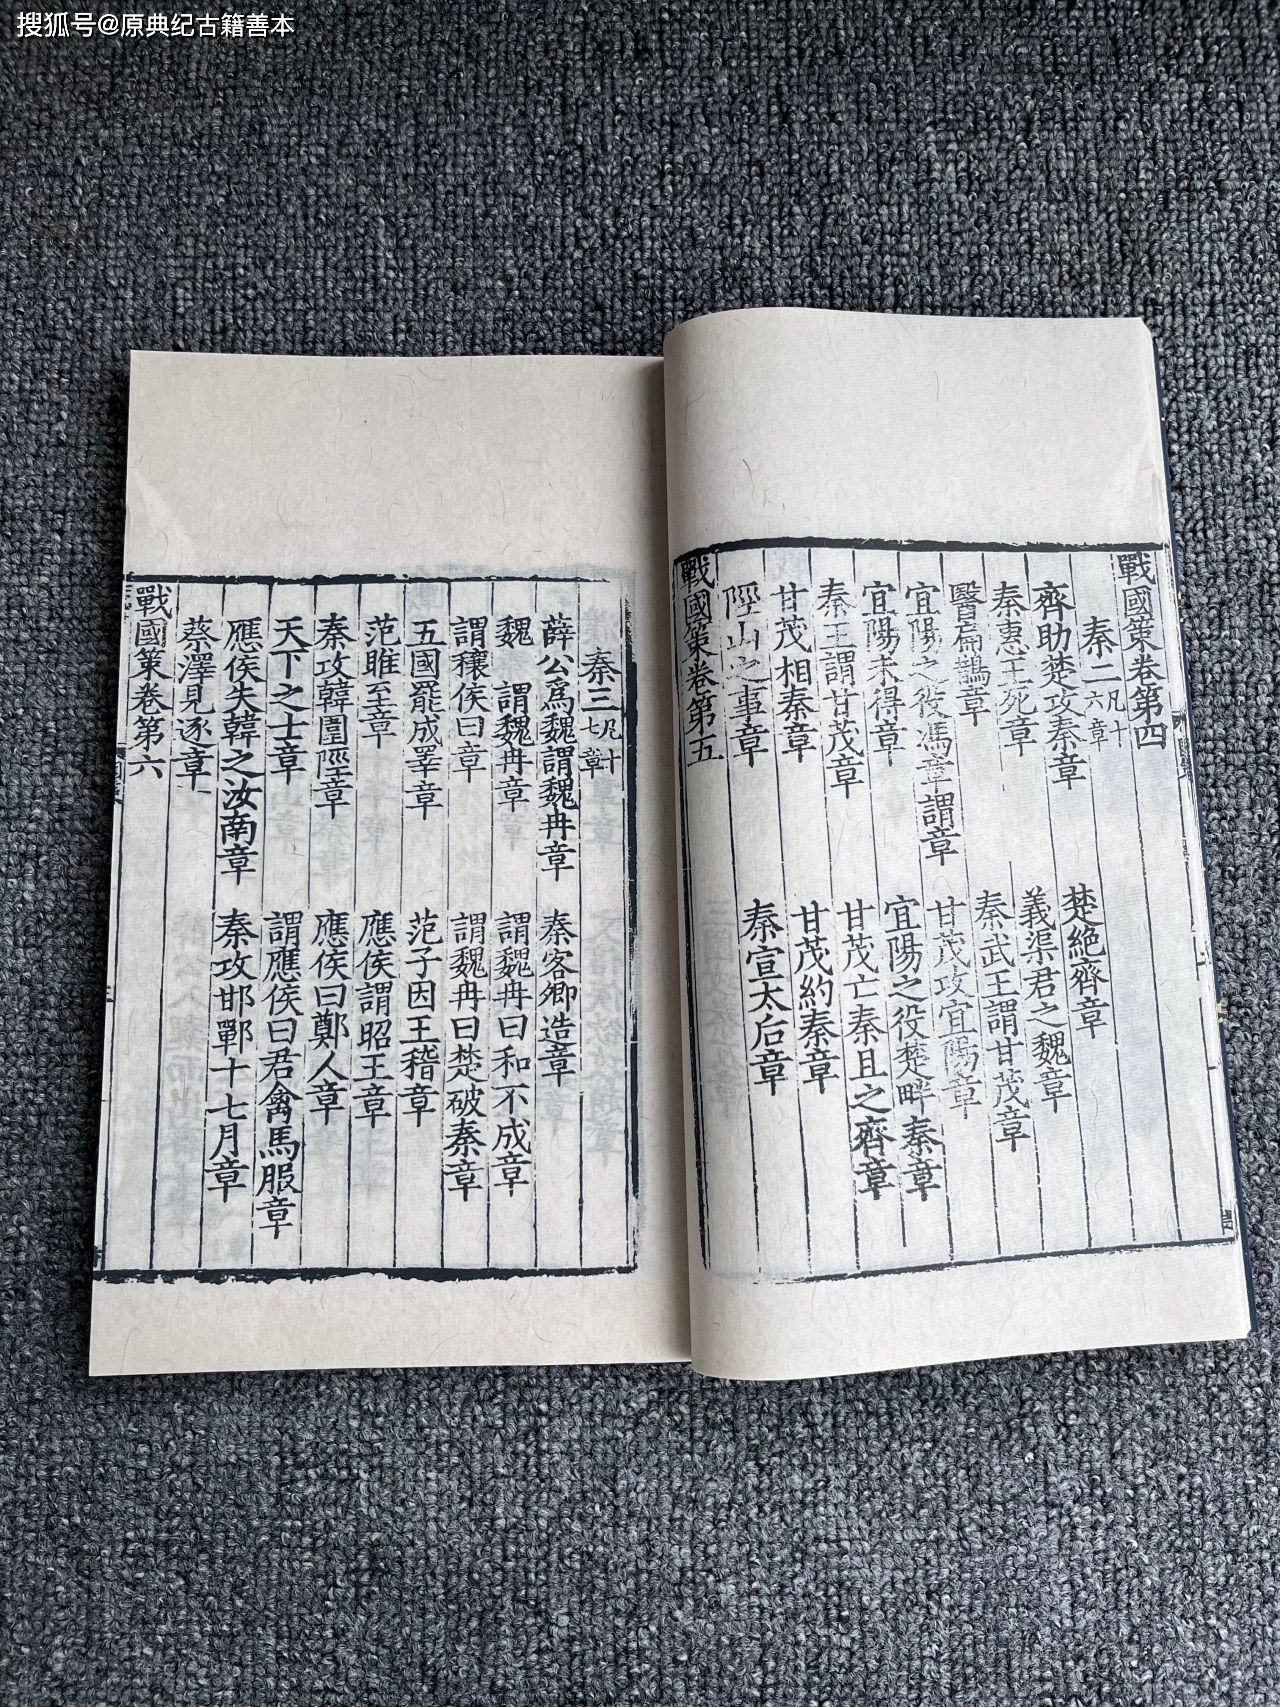 搜狐号@原典纪古籍善本
戰國策卷第四
秦二凡十六章
齊助楚攻秦章 楚絶齊章
秦惠王死章 義渠君之魏章
醫扁鵲章 秦武王謂甘茂章
宜陽之役馮章謂章 甘茂攻宜陽章
宜陽未得章 宜陽之役楚畔秦章
秦王謂甘茂章 甘茂亡秦且之齊章
甘茂相秦章 甘茂約秦章
陘山之事章 秦宣太后章
戰國策卷第五
秦三凡十七章
薛公爲魏謂魏冉章 秦客卿造章
魏 謂魏冉章 謂魏冉曰和不成章
謂穰侯曰章 謂魏冉曰楚破秦章
五國罷成睪章 范子因王稽章
范雎至章 應侯謂昭王章
秦攻韓圍陘章 應侯曰鄭人章
天下之士章 謂應侯曰君禽馬服章
應侯失韓之汝南章 秦攻邯鄲十七月章
蔡澤見逐章
戰國策卷第六